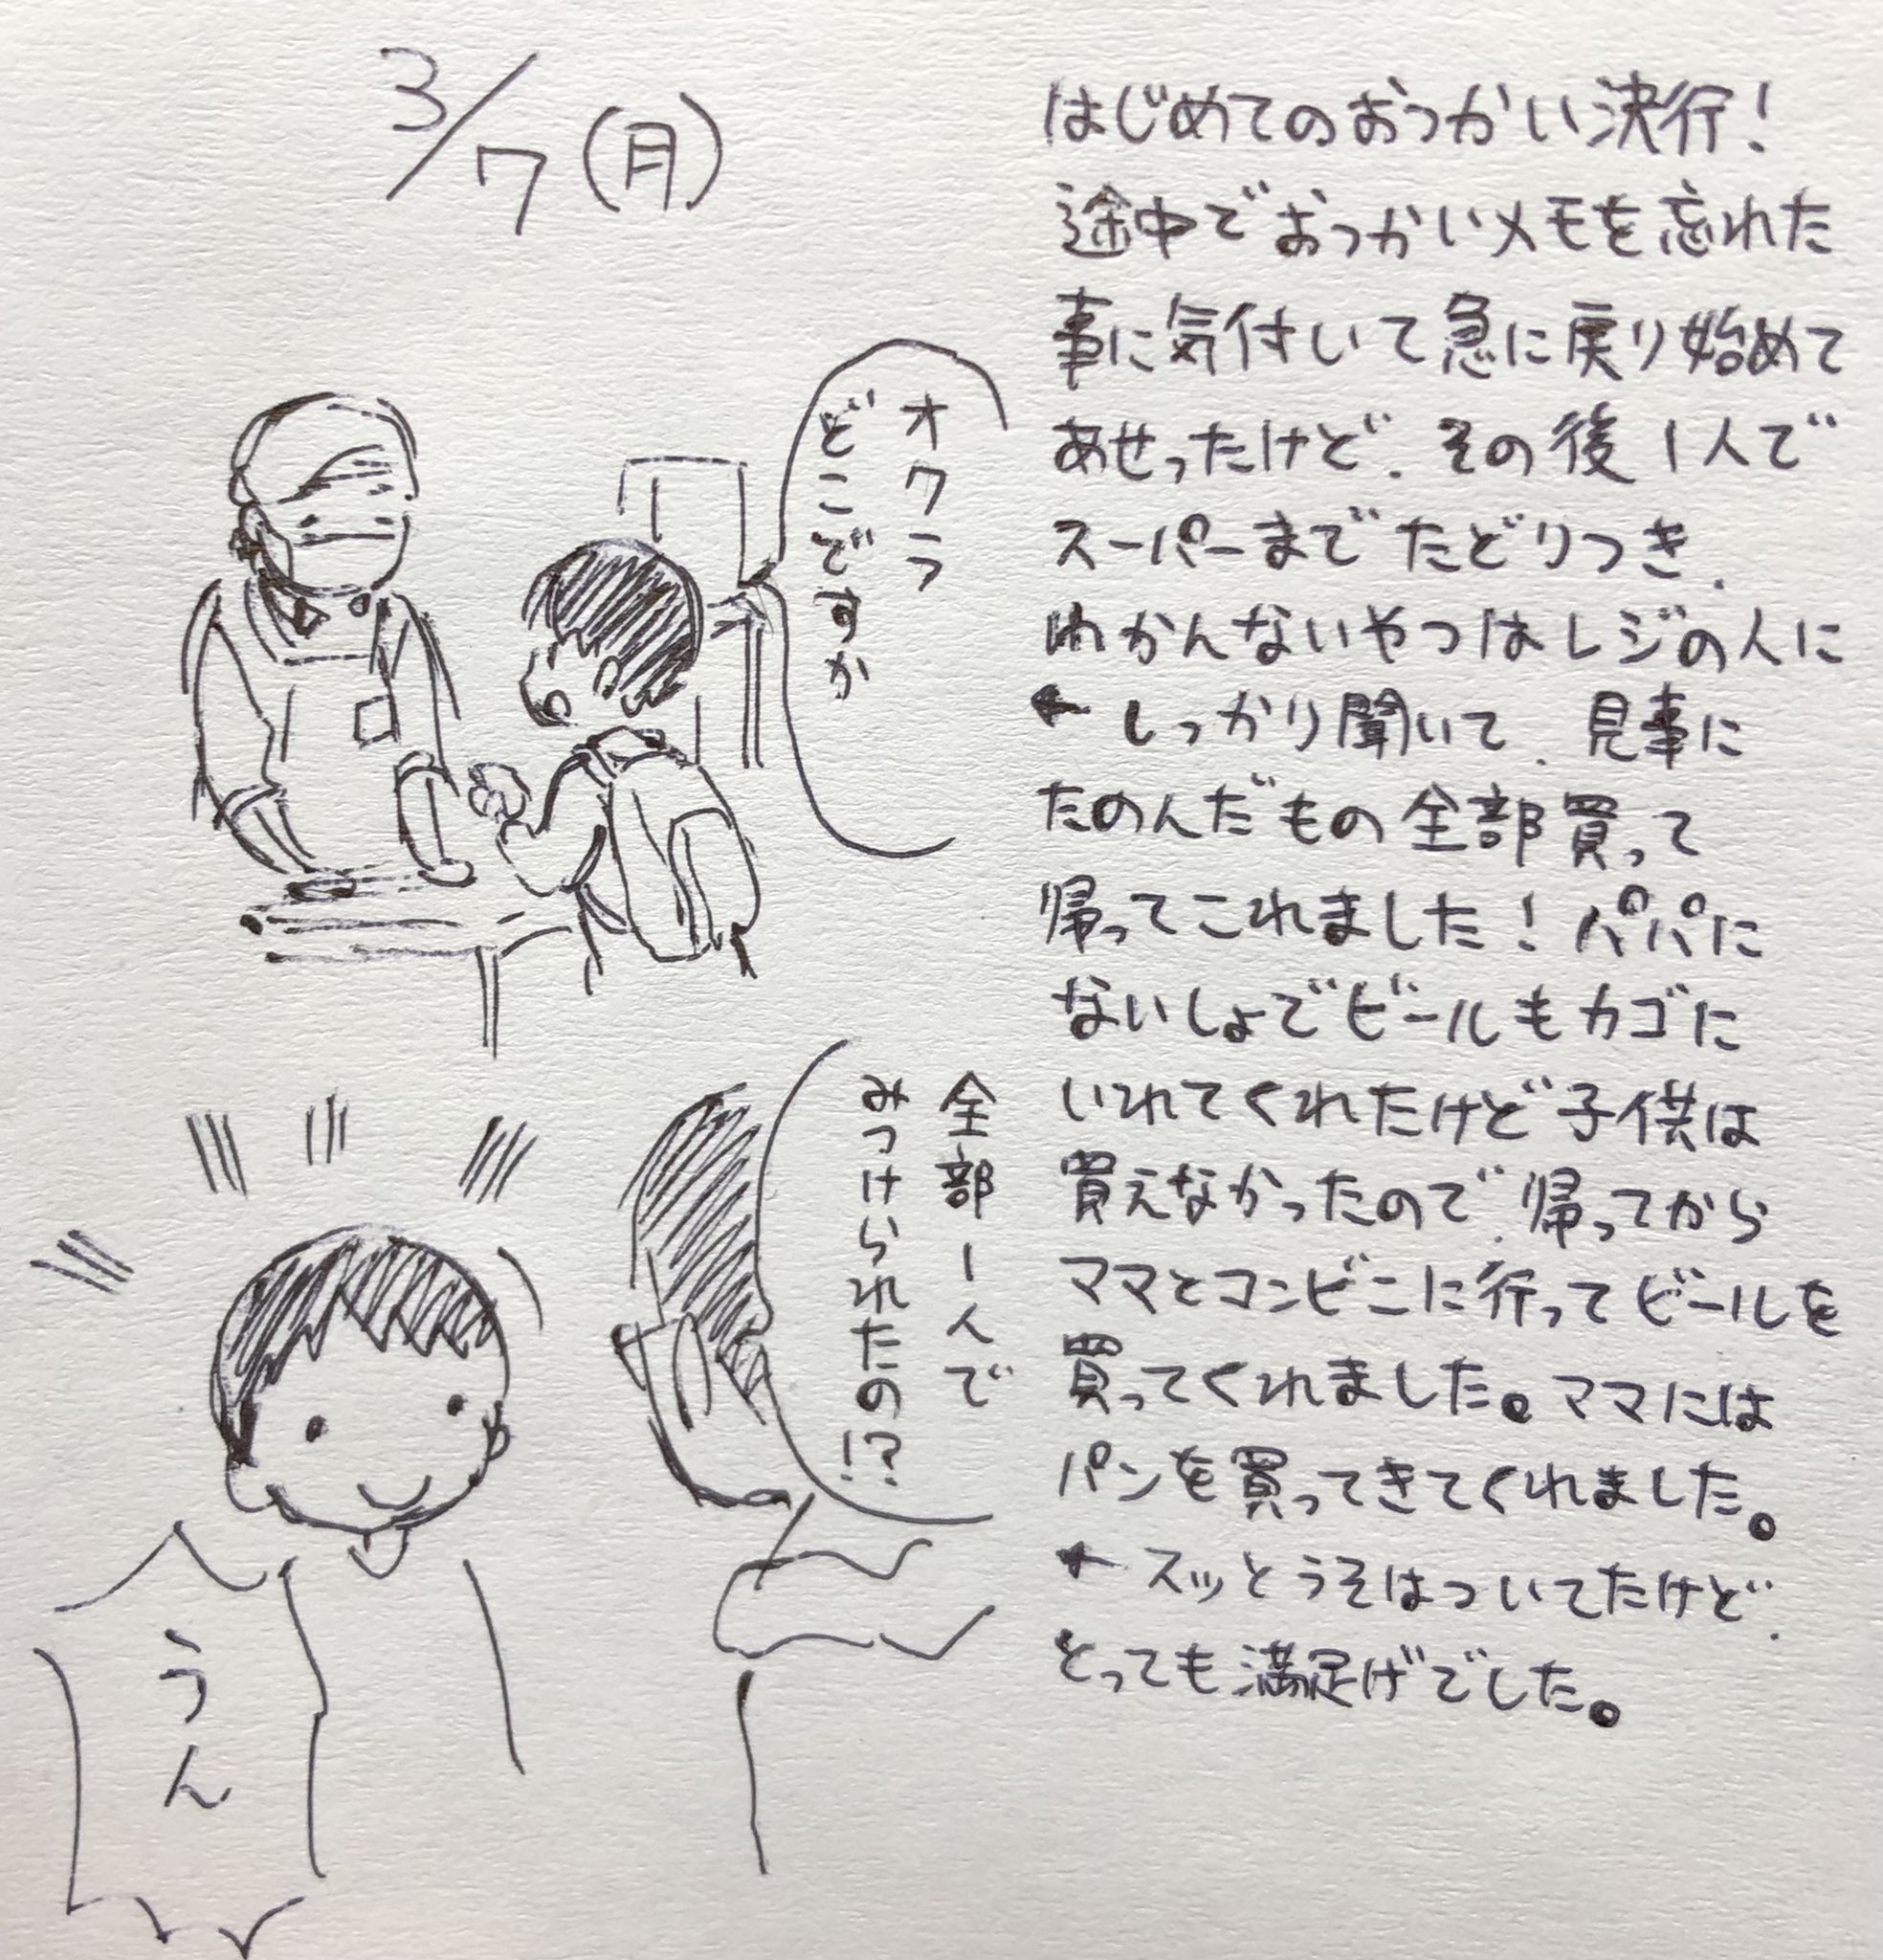 3/7(月)
はじめてのおつかい決行!
途中でおつかいメモを忘れた
事に気付いて急に戻り始めて
あせったけど、その後1人で
スーパーまでたどりつき、
わかんないやつはレジの人に
←しっかり聞いて、見事に
たのんだもの全部買って
帰ってこれました!パパに
ないしょでビールもカゴに
いれてくれたけど子供は
買えなかったので、帰ってから
ママとコンビニに行ってビールを
買ってくれました。ママには
パンを買ってきてくれました。
←スッとうそはついてたけど、
とっても満足げでした。
オクラ
どこですか
全部一人で
みつけられたの!?
うん